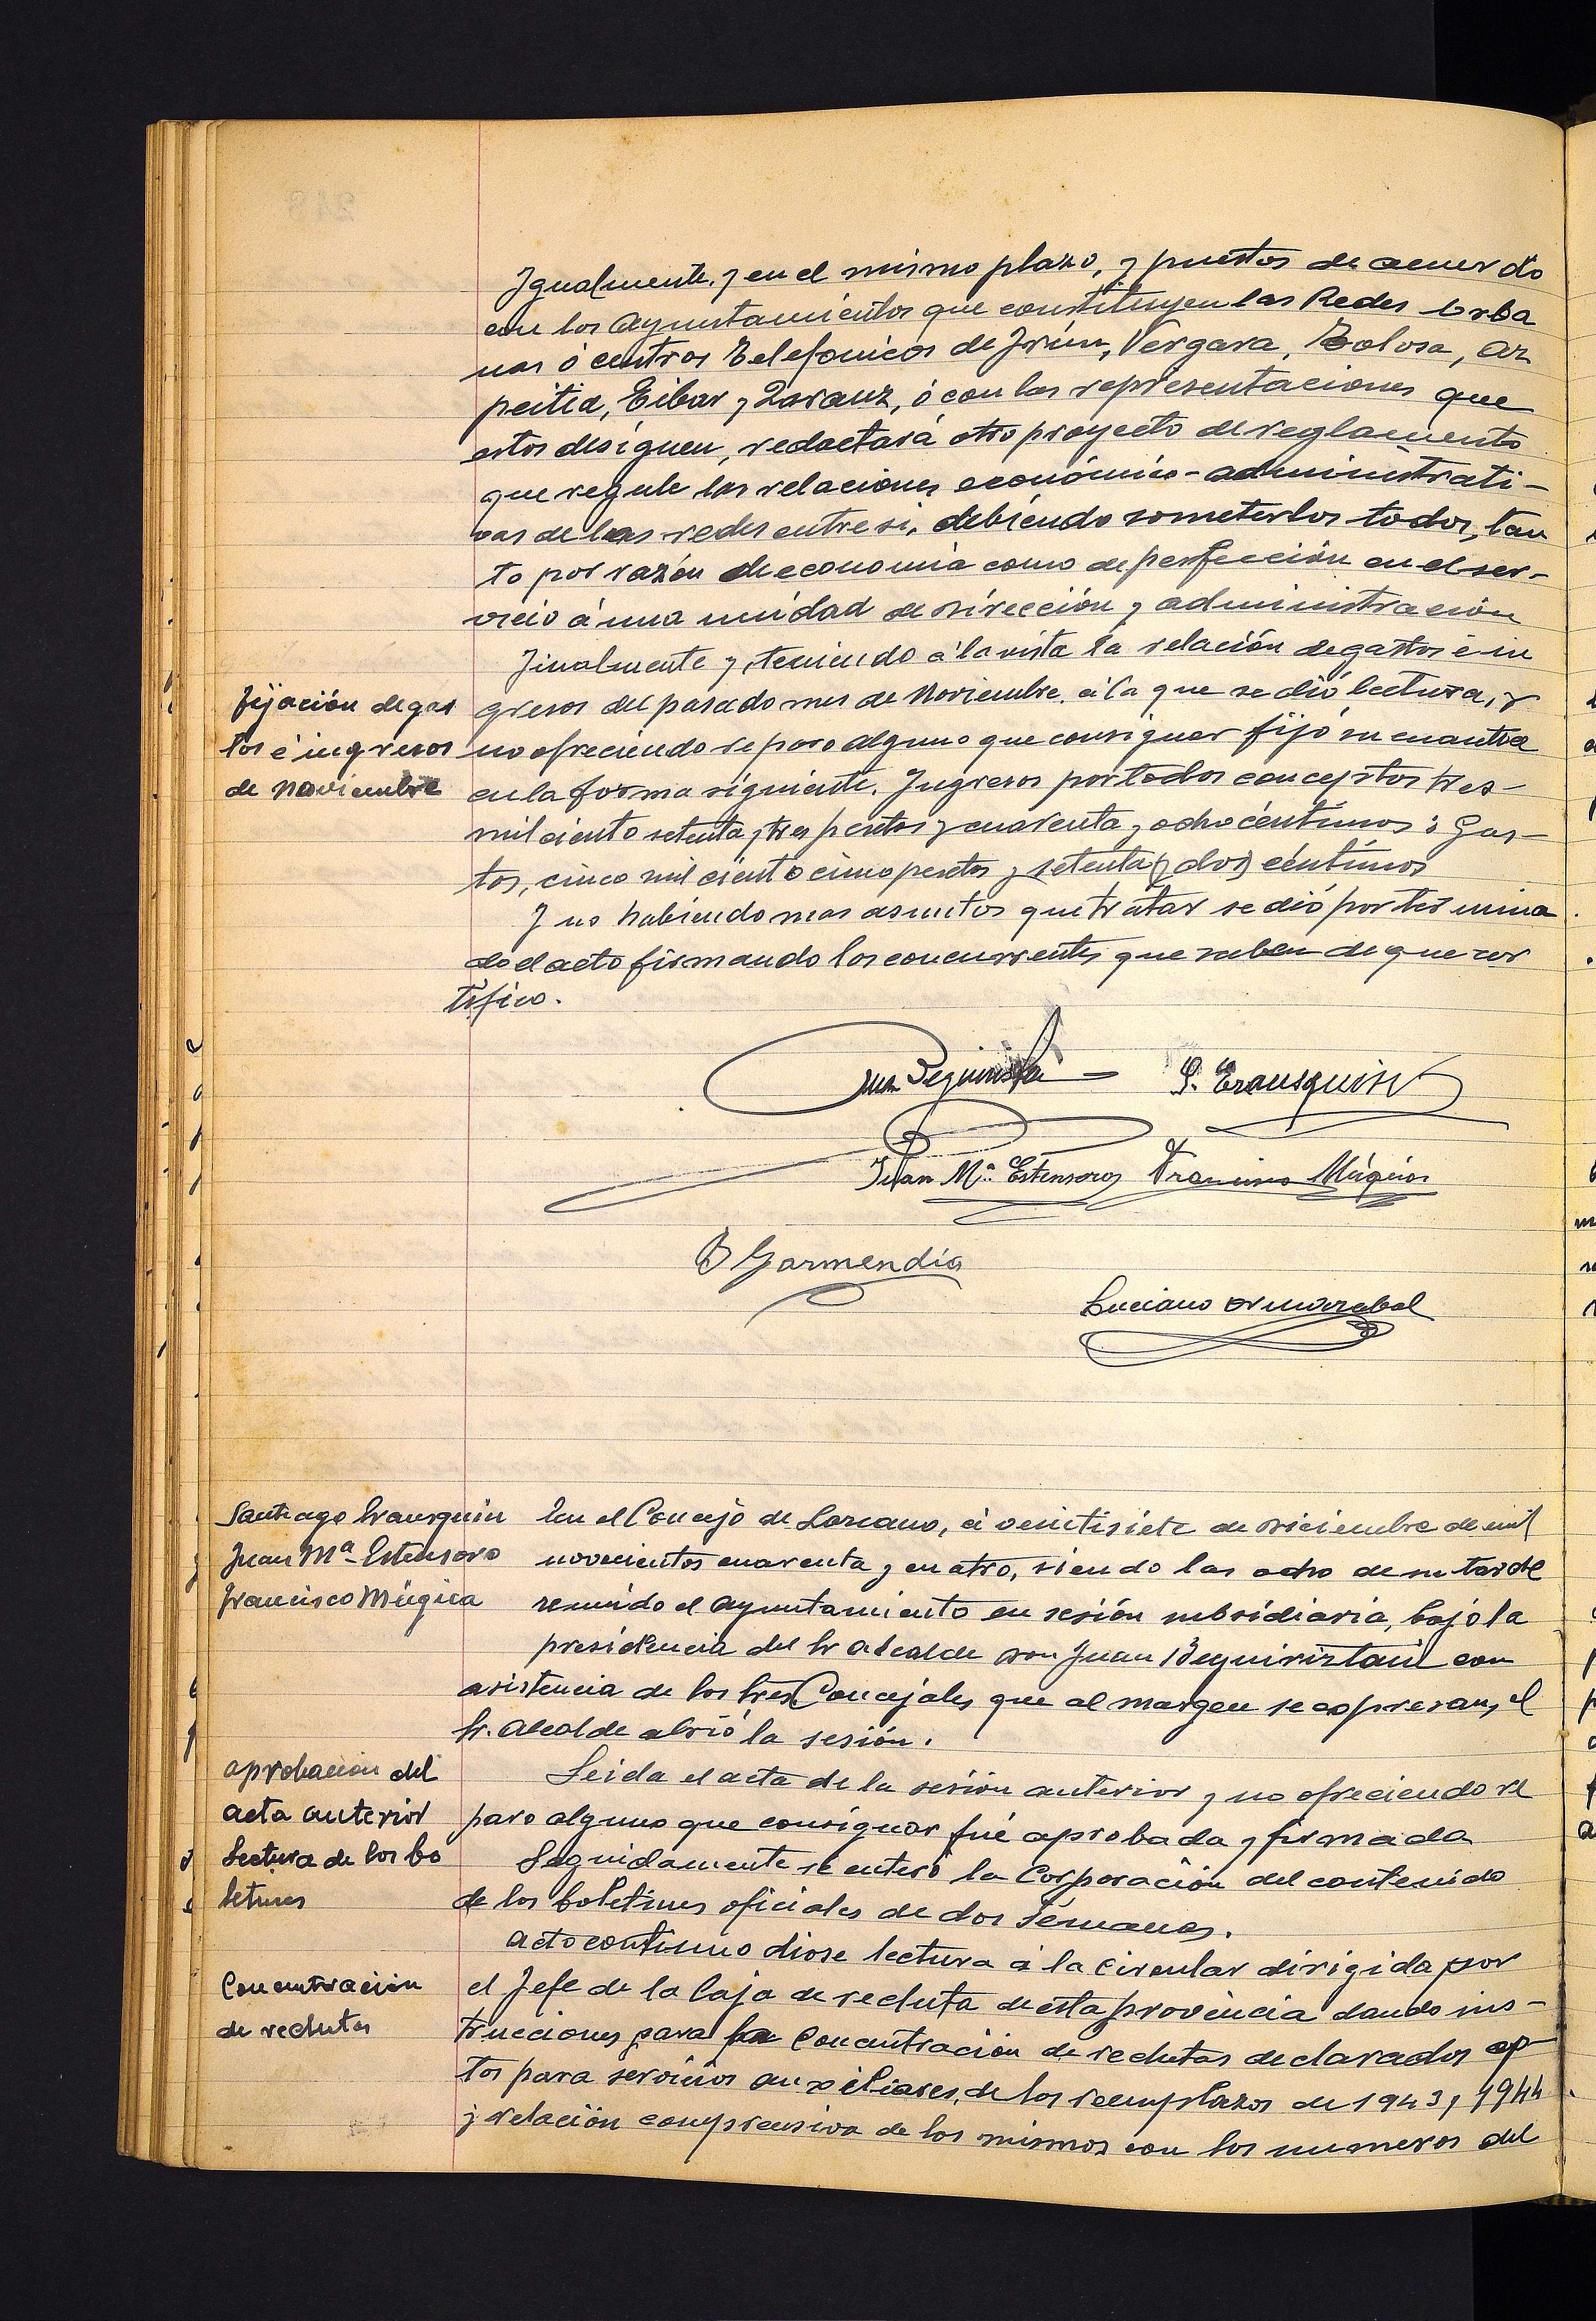 Igualmente, y en el mismo plazo, y puestos de acuerdo
con los Ayuntamientos que constituyen las Redes Urba
nas ó centros Telefonicos de Irún, Vergara, Tolosa, Az
peitia, Eibar y Zarauz, ó con las representaciones que
estos designen, redactará otro proyecto de reglamento
que regule las relaciones económico-administrati-
vas de las redes entre si, debiendo someterlos todos, tan
to por razón de economia como de perfección en el ser-
vicio á una unidad de Dirección y administración
Finalmente y, teniendo á la vista la relación de gastos é in
Fijación de gas
tos é ingresos
de Noviembre
gresos del pasado mes de Noviembre. á la que se dió lectura, y
no ofreciendo reparo alguno que consignar fijó su cuantia
en la forma siguiente. Ingresos por todos conceptos tres-
mil ciento setenta y tres pesetas y cuarenta y ocho céntimos: Gas-
tos, cinco mil ciento cinco pesetas y setenta (y dos) céntimos
Y no habiendo mas asuntos que tratar se dió por termina
do el acto firmando los concurrentes que saben de que cer
tifico.
Juan Beguiristain
S. Erausquin
Juan Mª Estensoro
Francisco Múgica
B Garmendia
Luciano
Santiago Erausquin
Juan Mª Estensoro
Francisco Múgica
En el Concejo de Lazcano, á veintisiete de Diciembre de mil
novecientos cuarenta y cuatro, siendo las ocho de su tarde
reunido el Ayuntamiento en sesión subsidiaria, bajo la
presidencia del Sr Alcalde Don Juan Beguiristain con
asistencia de los tres Concejales que al margen se expresan, el
Sr. Alcalde abrió la sesión.
Aprobación del
acta anterior
Leida el acta de la sesión anterior y no ofreciendo re
paro alguno que consignar fué aprobada y firmada
Lectura de los bo
letines
Seguidamente se enteró la Corporación del contenido
de los boletines oficiales de dos semanas.
Acto continuo diose lectura á la Circular dirigida por
Concentración
de reclutas
el Jefe de la Caja de recluta de esta provincia dando ins-
trucciones para la Concentración de reclutas declarados ap
tos para servicios auxiliares, de los reemplazos de 1943 y 1944
y relación comprensiva de los mismos con los numeros del